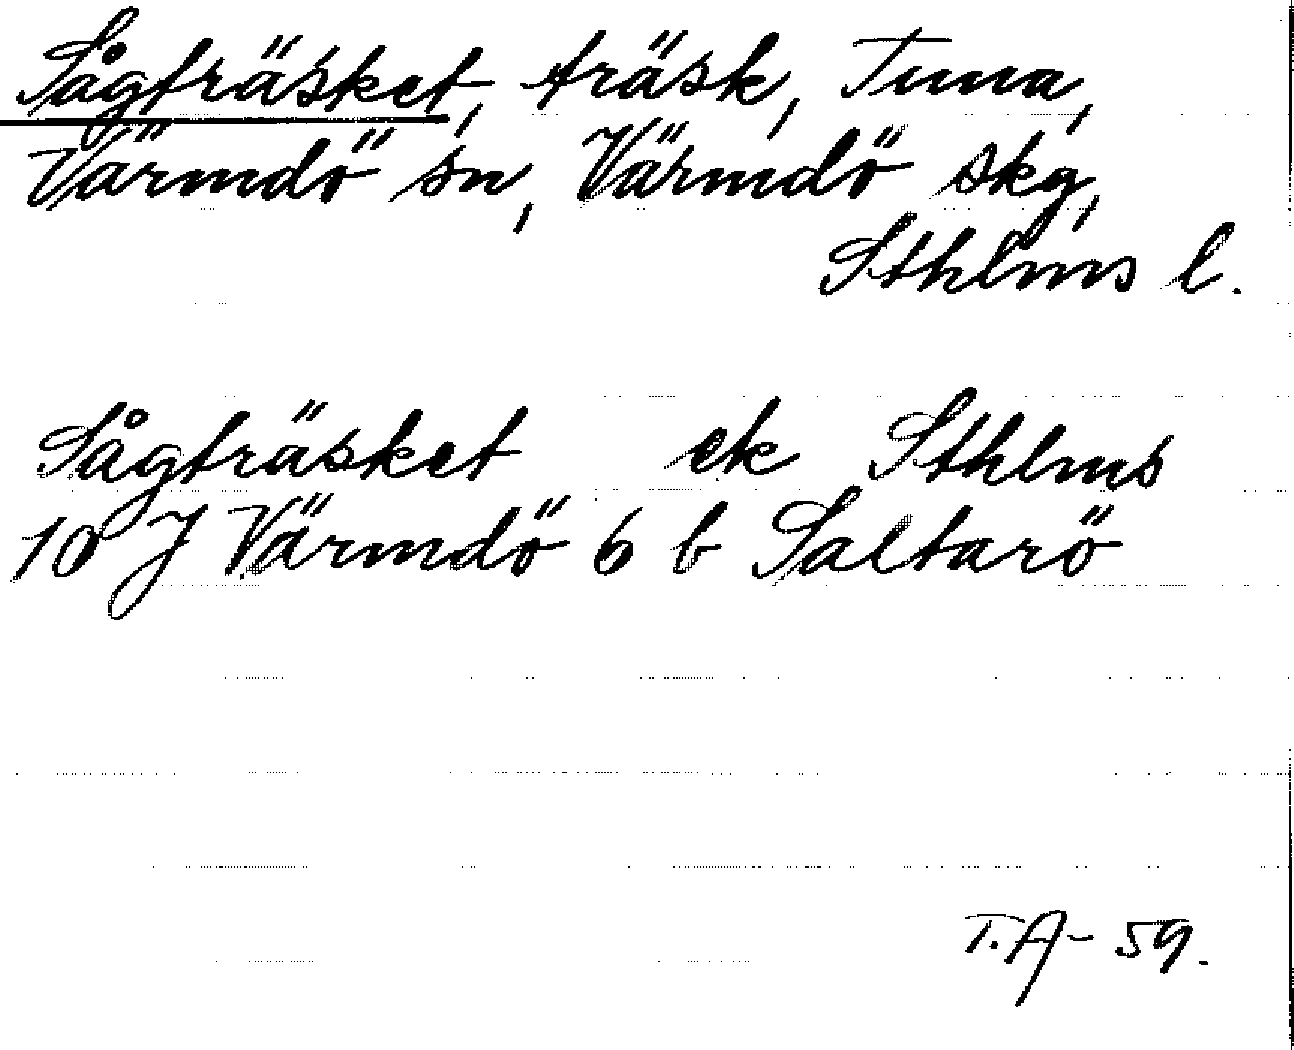 Sågträsket, träsk, Tuna,
Värmdö sn, Värmdö skg,
Sthlms l.
Sågträsket ek Sthlms
10 J Värmdö 6 b Saltarö
T.A - 59.